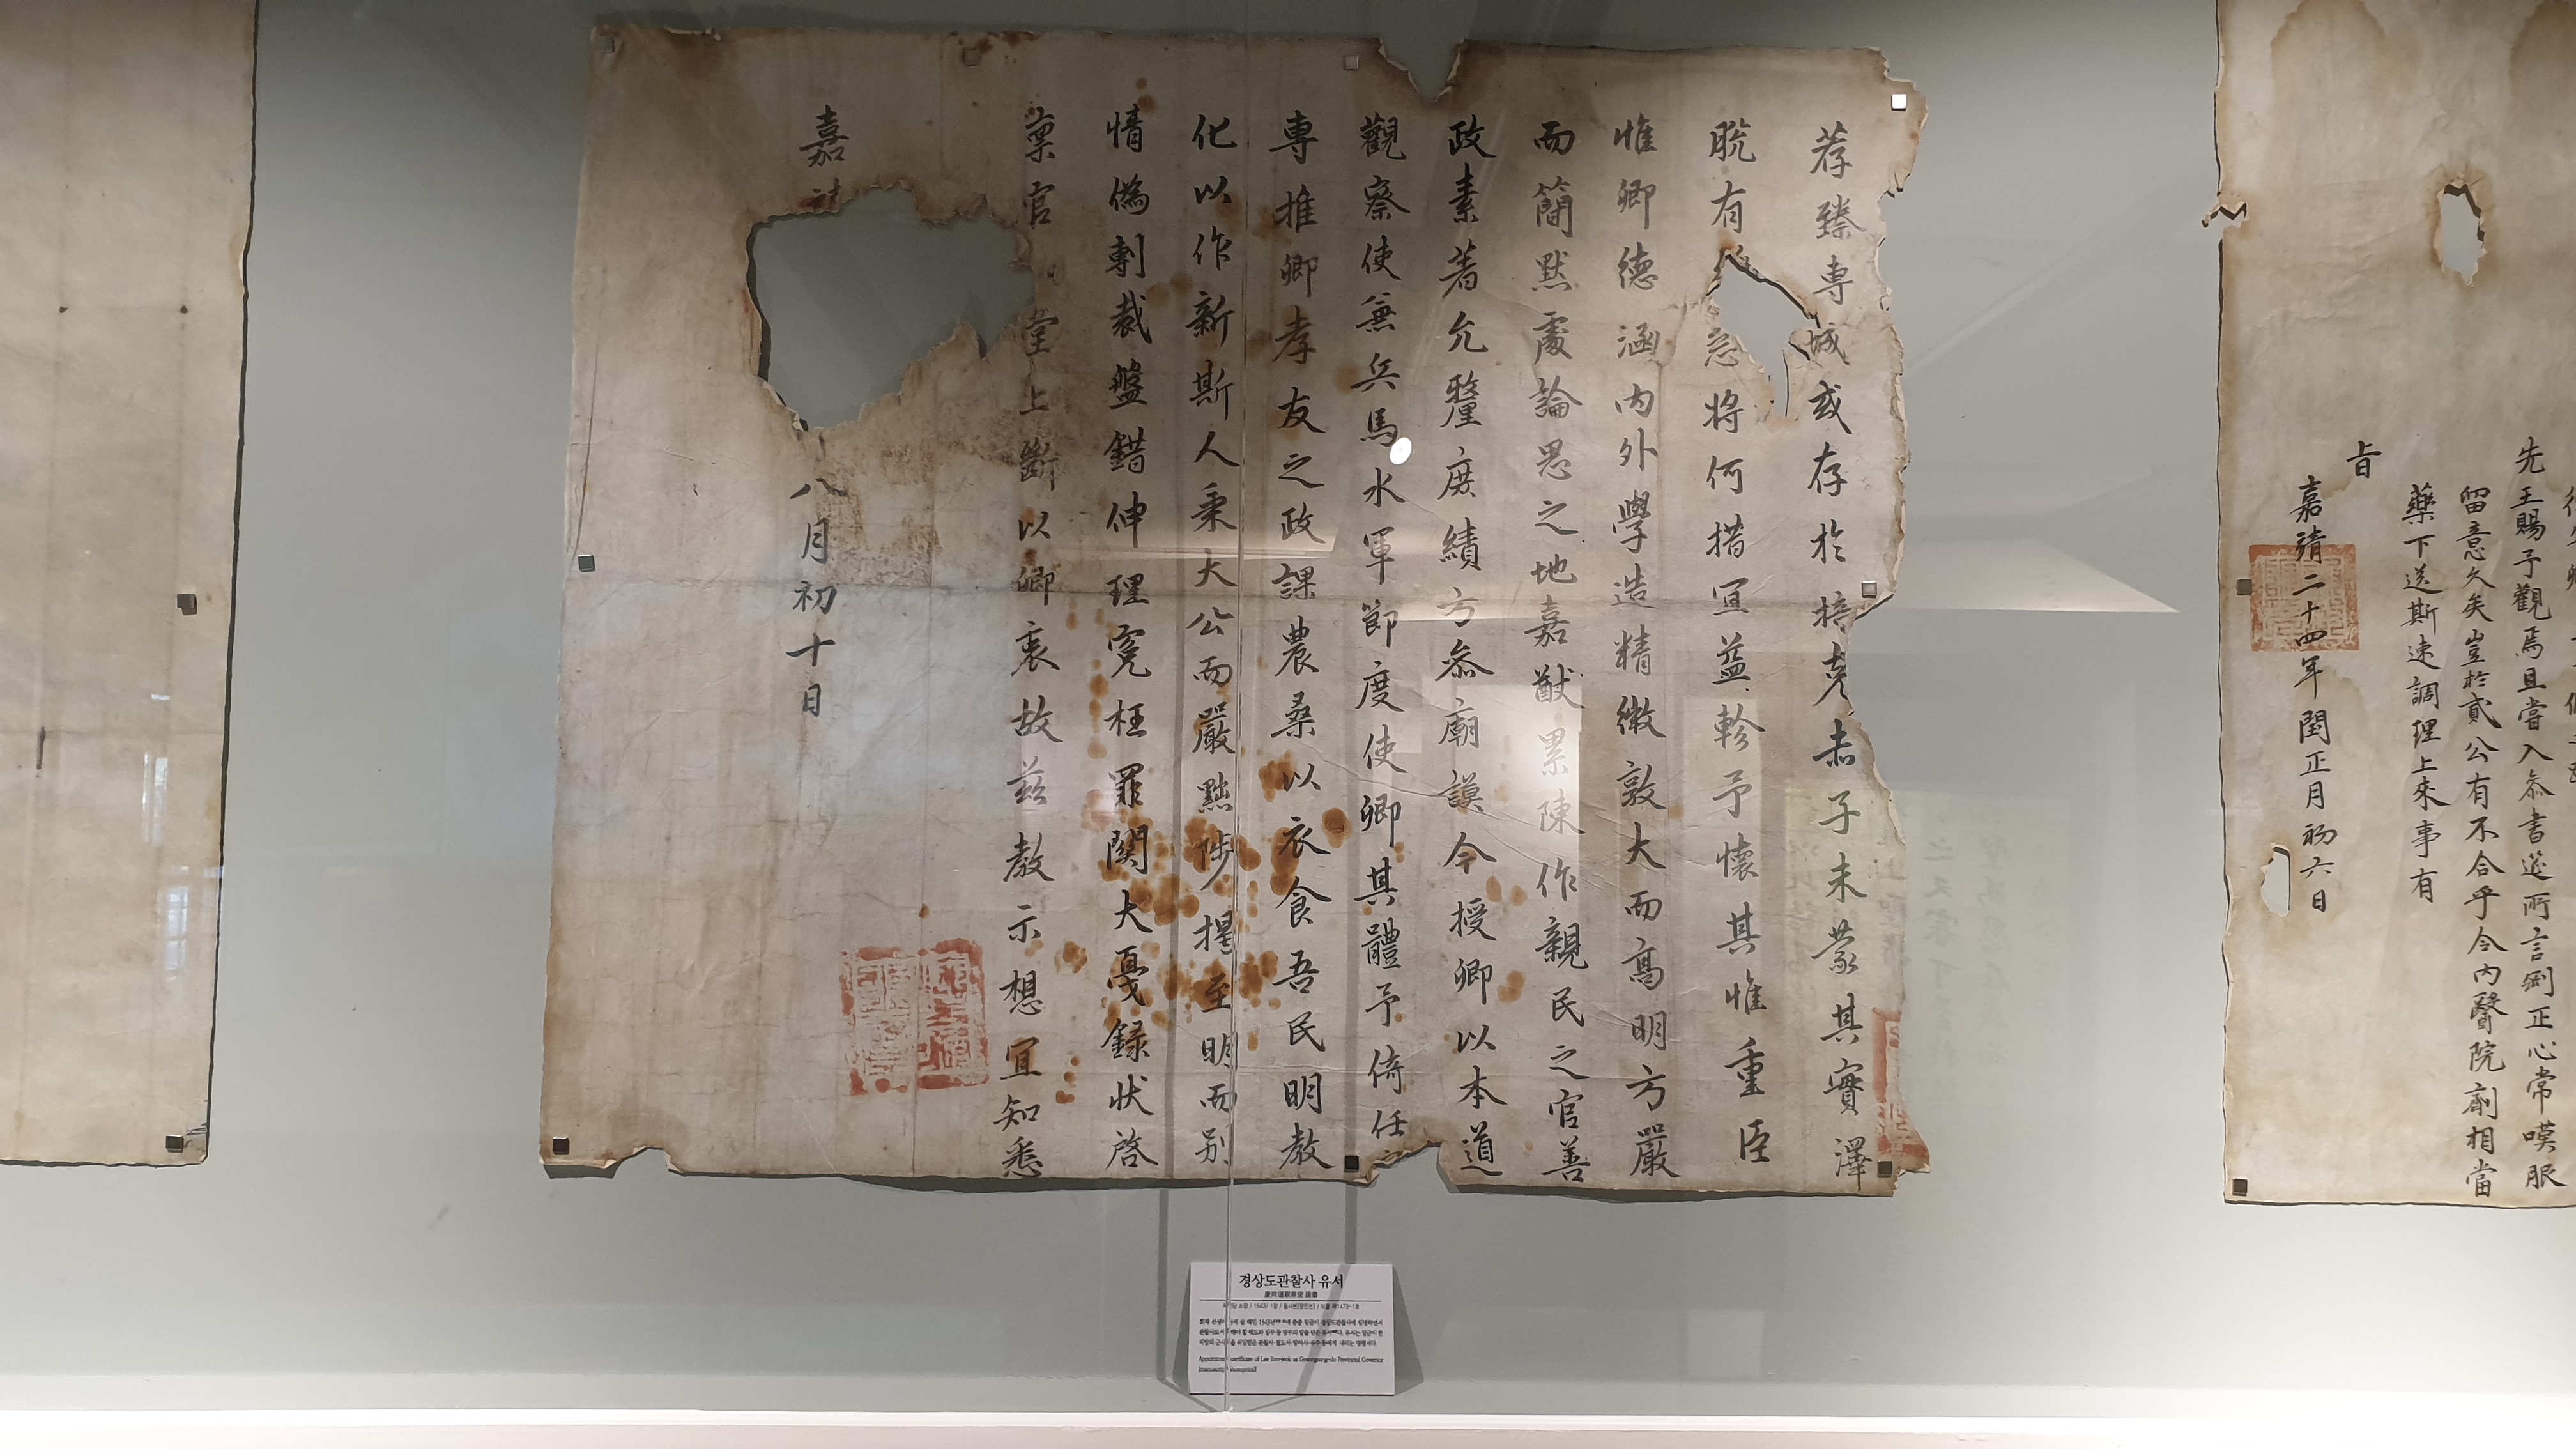 荐臻專城或存於掊克赤子未蒙其實澤
脫有 急將何措宜益軫予懷其惟重臣
惟卿德涵內外學造精微敦大而高明方嚴
而簡默處論思之地嘉猷累陳作親民之官善
政素著允釐庶績方叅廟謨今授卿以本道
觀察使兼兵馬水軍節度使卿其體予倚任之
專推卿孝友之政課農桑以衣食吾民明敎
化以作新斯人秉大公而嚴黜陟擢至明而別
情僞剸裁盤錯伸理寃枉罪關大戞錄狀啓
稟官 堂上斷以卿衷故玆敎示想宜知悉
嘉 八月初十日
先王賜予觀焉且嘗入叅書筵所言剛正心常嘆服
留意久矣豈於貳公有不合乎令內醫院劑相當
藥下送斯速調理上來事有
旨
嘉靖二十四年閏正月初六日
경상도관찰사 유서
慶尙道觀察使 諭書
Appointment certificate of Lee Eon-jeok as Gyeongsang-do Provincial Governor